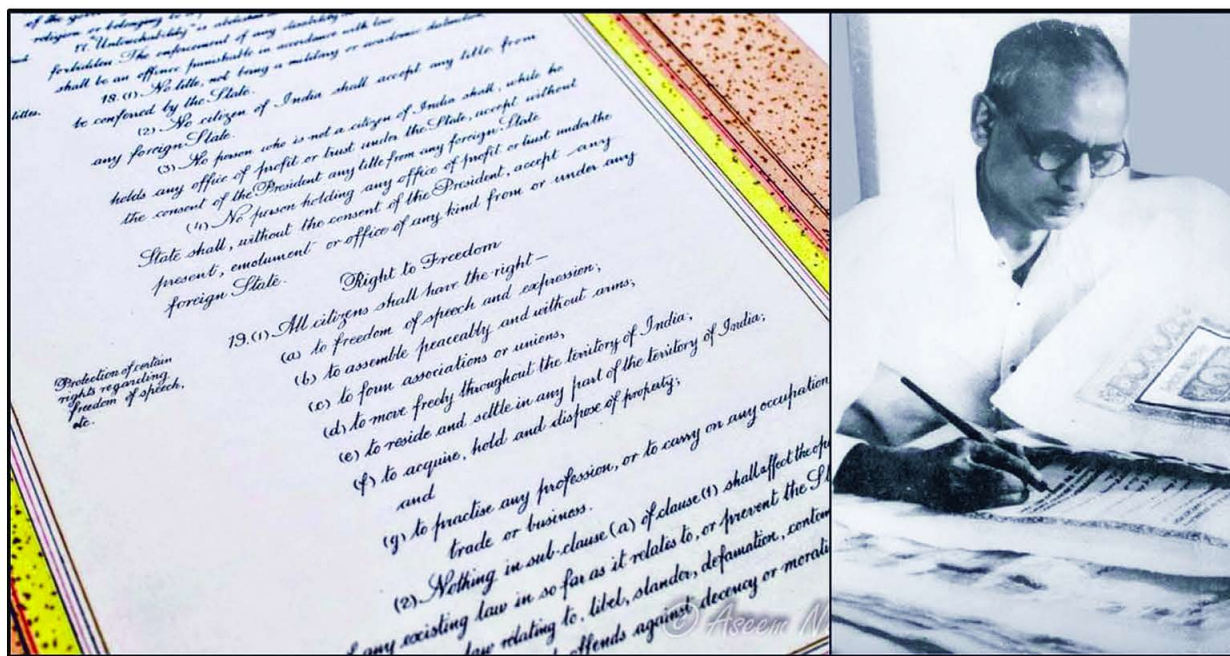 of the gove
religion or belonging to a
17. "Untouchability" is abolished and
forbidden. The enforcement of any disability
shall be an offence punishable in accordance with law.
18. (1) No title, not being a military or academic distinction,
be conferred by the State.
(2) No citizen of India shall accept any title from
any foreign State.
(3) No person who is not a citizen of India shall, while he
holds any office of profit or trust under the State, accept without
the consent of the President any title from any foreign State.
(4) No person holding any office of profit or trust under the
State shall, without the consent of the President, accept any
present, emolument or office of any kind from or under any
foreign State.
Right to Freedom
Protection of certain
rights regarding
freedom of speech,
etc.
19. (1) All citizens shall have the right—
(a) to freedom of speech and expression;
(b) to assemble peaceably and without arms;
(c) to form associations or unions;
(d) to move freely throughout the territory of India;
(e) to reside and settle in any part of the territory of India;
(f) to acquire, hold and dispose of property;
and
(g) to practise any profession, or to carry on any occupation
trade or business.
(2) Nothing in sub-clause (a) of clause (1) shall affect the ope
any existing law in so far as it relates to, or prevent the S
law relating to, libel, slander, defamation, contem
offends against decency or morali
© Aseem N